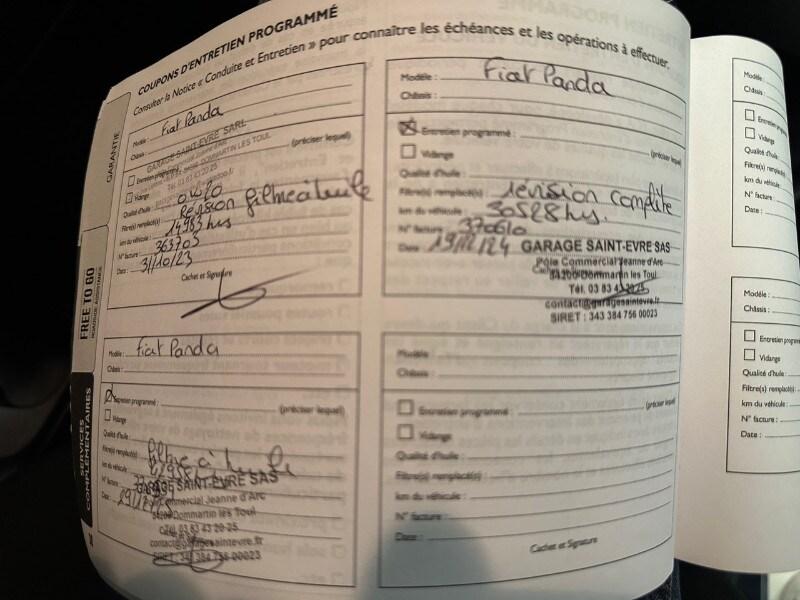 COUPONS D'ENTRETIEN PROGRAMMÉ
Consulter la Notice « Conduite et Entretien » pour connaître les échéances et les opérations à effectuer.
GARANTIE
FREE TO GO
SERVICES COMPLÉMENTAIRES
Modèle : Fiat Panda
Châssis :
GARAGE SAINT-EVRE SARL
DOMMARTIN LES TOUL
Entretien programmé : (préciser lequel)
Vidange
Qualité d'huile : 0W20
Filtre(s) remplacé(s) : Révision filtre à huile
km du véhicule : 14983
N° facture : 363703
Date : 31/10/23
Cachet et Signature
Modèle : Fiat Panda
Châssis :
Entretien programmé : (préciser lequel)
Vidange
Qualité d'huile :
Filtre(s) remplacé(s) : révision complète
km du véhicule : 30528
N° facture : 370610
Date : 19/12/24
GARAGE SAINT-EVRE SAS
Pôle Commercial Jeanne d'Arc
54200 Dommartin les Toul
Tél. 03 83 43 20 25
contact@garagesaintevre.fr
SIRET : 343 384 756 00023
Modèle : Fiat Panda
Châssis :
Entretien programmé : (préciser lequel)
Vidange
Qualité d'huile :
Filtre(s) remplacé(s) : filtre à huile
km du véhicule :
N° facture :
Date :
GARAGE SAINT-EVRE SAS
Commercial Jeanne d'Arc
54200 Dommartin les Toul
03 83 43 20 25
contact@garagesaintevre.fr
SIRET : 343 384 756 00023
Modèle :
Châssis :
Entretien programmé : (préciser lequel)
Vidange
Qualité d'huile :
Filtre(s) remplacé(s) :
km du véhicule :
N° facture :
Date :
Cachet et Signature
Modèle :
Châssis :
Entretien
Vidange
Qualité d'huile
Filtre(s) remplacé
km du véhicule :
N° facture :
Date :
Modèle :
Châssis :
Entretien programm
Vidange
Qualité d'huile :
Filtre(s) remplacé(
km du véhicule :
N° facture :
Date :